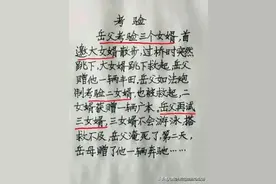 考验
岳父考验三个女婿,首
邀大女婿散步,过桥时突然
跳下,大女婿跳下救起,岳父
赠他一辆丰田,岳父如法炮
制考验二女婿,也被救起,二
女婿获赠一辆广本,岳父再试
三女婿,三女婿不会游泳,搭
救不及,岳父淹死了,第二天,
岳母赠了他一辆奔驰……